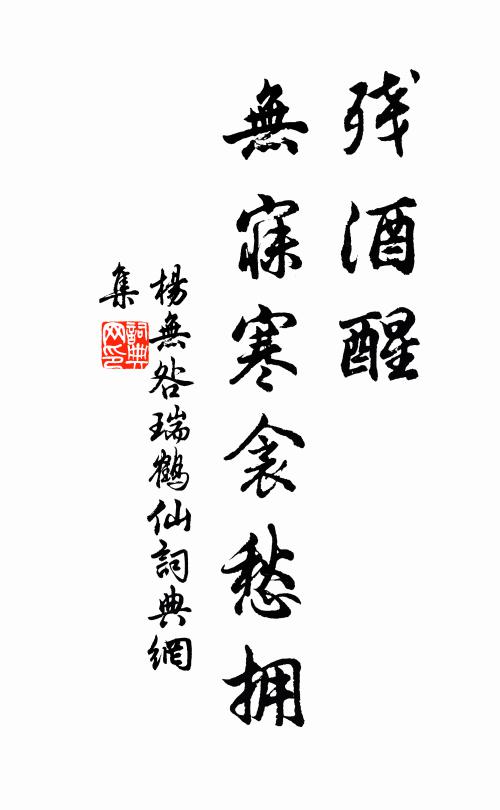 残酒醒
無寐寒衾愁拥
楊無咎瑞鶴仙詞典網
集
詞典网印